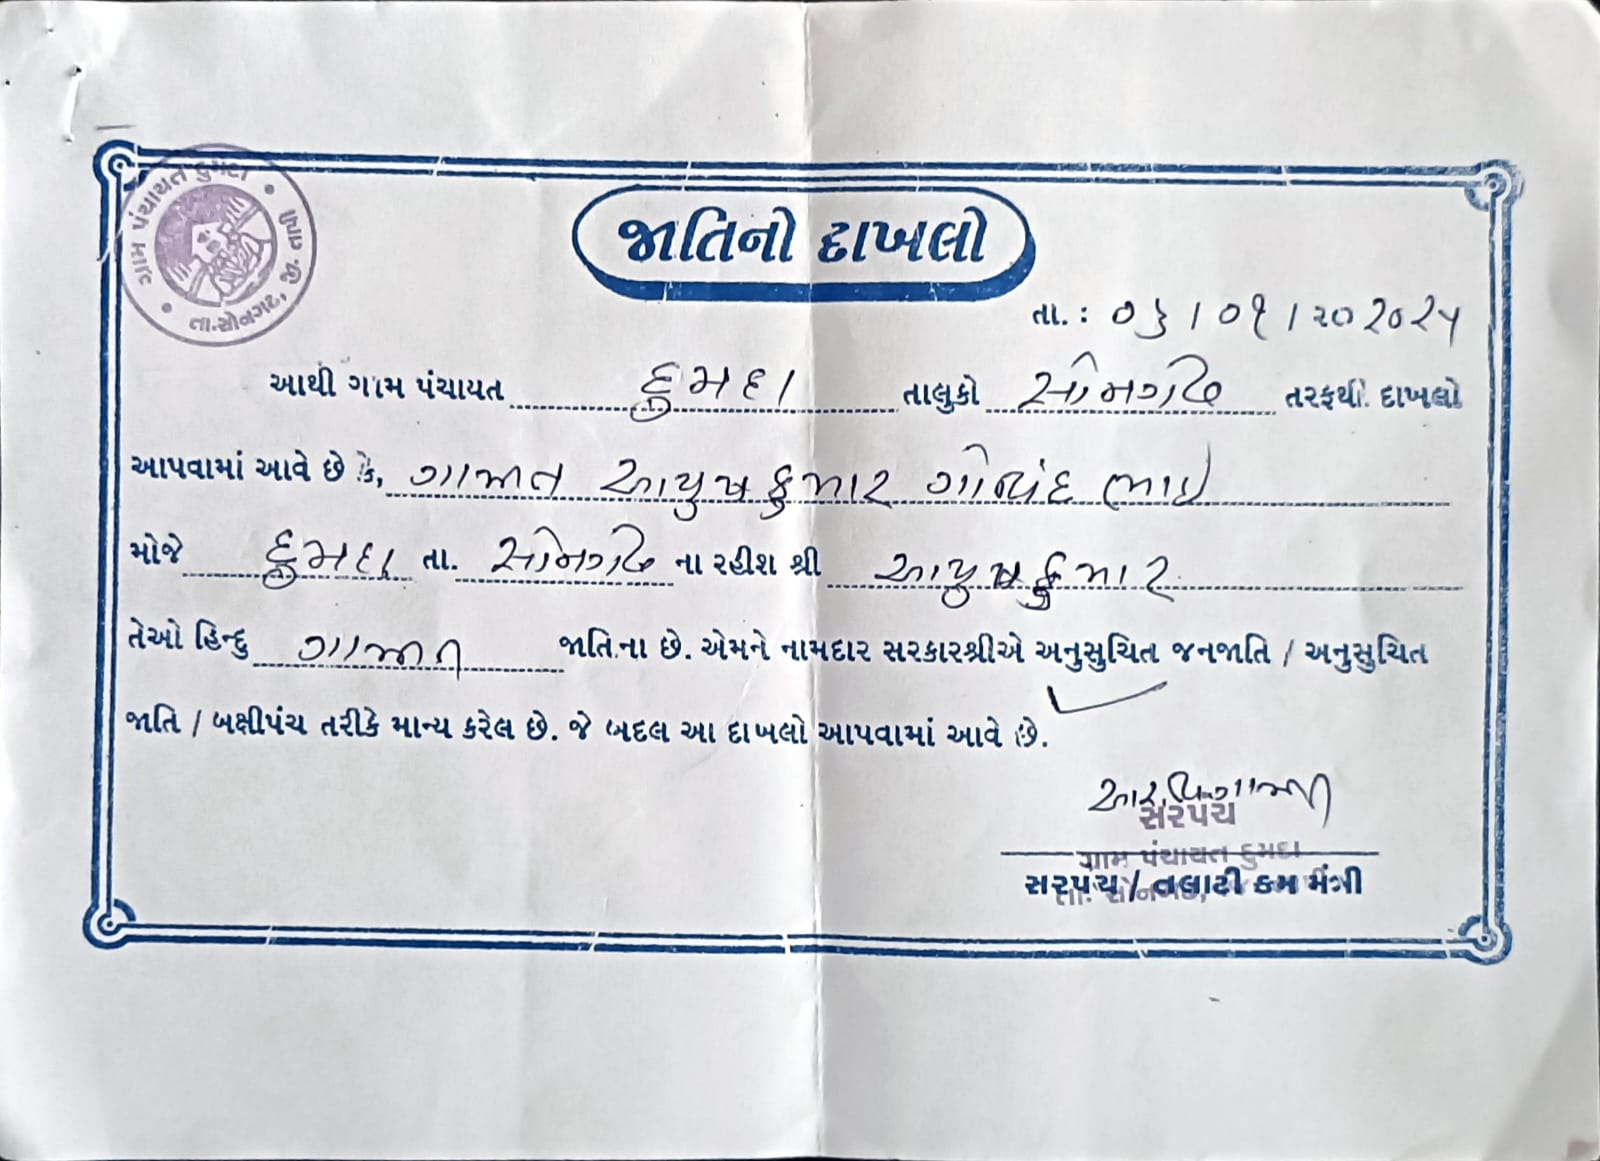 ગ્રામ પંચાયત દુમદા
તા.સોનગઢ, જી. તાપી
જાતિનો દાખલો
તા. : ૦૬ / ૦૧ / ૨૦૨૦૨૫
આથી ગામ પંચાયત દુમદા તાલુકો સોનગઢ તરફથી દાખલો
આપવામાં આવે છે કે, ગામીત આયુષકુમાર ગોવિંદભાઇ
મોજે દુમદા તા. સોનગઢ ના રહીશ શ્રી આયુષકુમાર
તેઓ હિન્દુ ગામીત જાતિના છે. એમને નામદાર સરકારશ્રીએ અનુસુચિત જનજાતિ / અનુસુચિત
જાતિ / બક્ષીપંચ તરીકે માન્ય કરેલ છે. જે બદલ આ દાખલો આપવામાં આવે છે.
સરપંચ
ગ્રામ પંચાયત દુમદા
સરપંચ / તલાટી કમ મંત્રી